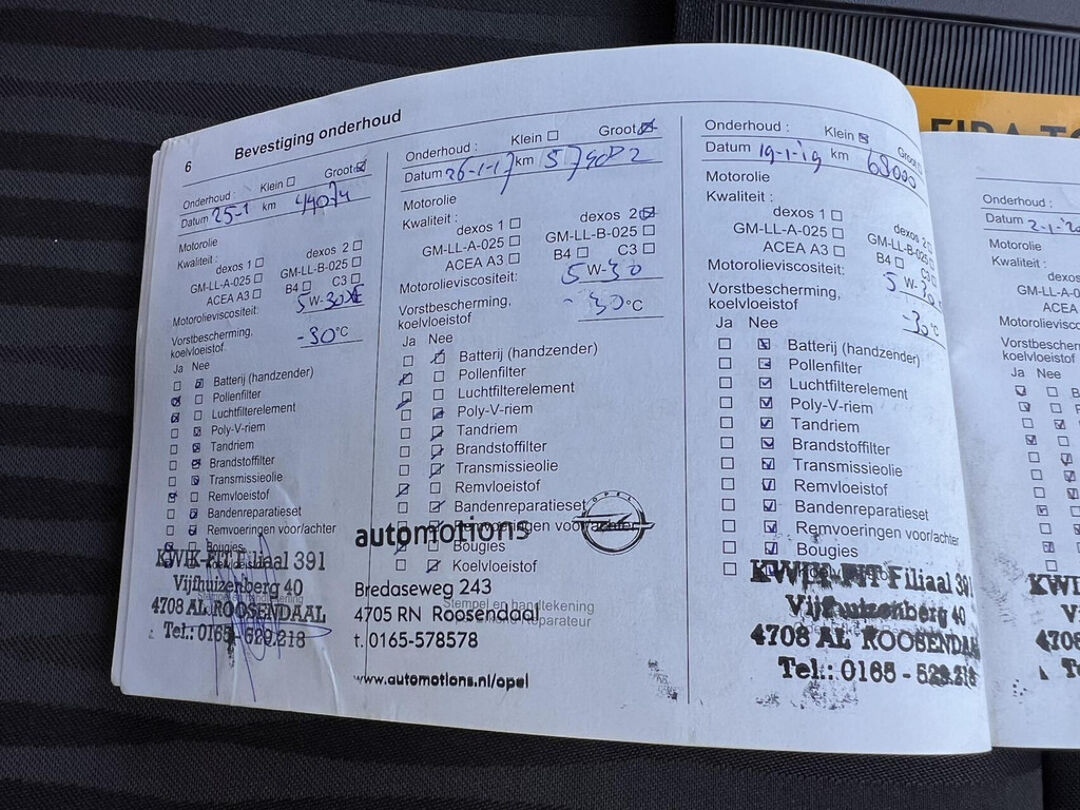 6 Bevestiging onderhoud
Onderhoud : Klein Groot
Datum 25-1 km 44074
Motorolie
Kwaliteit : dexos 1 dexos 2
GM-LL-A-025 GM-LL-B-025
ACEA A3 B4 C3
Motorolieviscositeit: 5 W-30
Vorstbescherming,
koelvloeistof -30°C
Ja Nee
Batterij (handzender)
Pollenfilter
Luchtfilterelement
Poly-V-riem
Tandriem
Brandstoffilter
Transmissieolie
Remvloeistof
Bandenreparatieset
Remvoeringen voor/achter
Bougies
KWIK-FIT Filiaal 391
Vijfhuizenberg 40
4708 AL ROOSENDAAL
Tel.: 0165 - 529.218
Onderhoud : Klein Groot
Datum 26-1-17 km
Motorolie
Kwaliteit : dexos 1 dexos 2
GM-LL-A-025 GM-LL-B-025
ACEA A3 B4 C3
Motorolieviscositeit: 5 W-30
Vorstbescherming,
koelvloeistof -30°C
Ja Nee
Batterij (handzender)
Pollenfilter
Luchtfilterelement
Poly-V-riem
Tandriem
Brandstoffilter
Transmissieolie
Remvloeistof
Bandenreparatieset
Remvoeringen voor/achter
Bougies
Koelvloeistof
OPEL
automotions
Bredaseweg 243
Stempel en handtekening
4705 RN Roosendaal
t. 0165-578578
www.automotions.nl/opel
Onderhoud : Klein Groot
Datum 19-1-19 km 68000
Motorolie
Kwaliteit : dexos 1 dexos 2
GM-LL-A-025 GM-LL-B-025
ACEA A3 B4
Motorolieviscositeit: 5 W-30
Vorstbescherming,
koelvloeistof -30°C
Ja Nee
Batterij (handzender)
Pollenfilter
Luchtfilterelement
Poly-V-riem
Tandriem
Brandstoffilter
Transmissieolie
Remvloeistof
Bandenreparatieset
Remvoeringen voor/achter
Bougies
KWIK-FIT Filiaal 391
Vijfhuizenberg 40
4708 AL ROOSENDAA
Tel.: 0165 - 529.218
Onderhoud :
Datum 2-1-20
Motorolie
Kwaliteit : dexos
GM-LL-A-0
ACEA
Motorolievisco
Vorstbescherm
koelvloeistof
Ja Nee
B
KWI
Vi
4708
Te